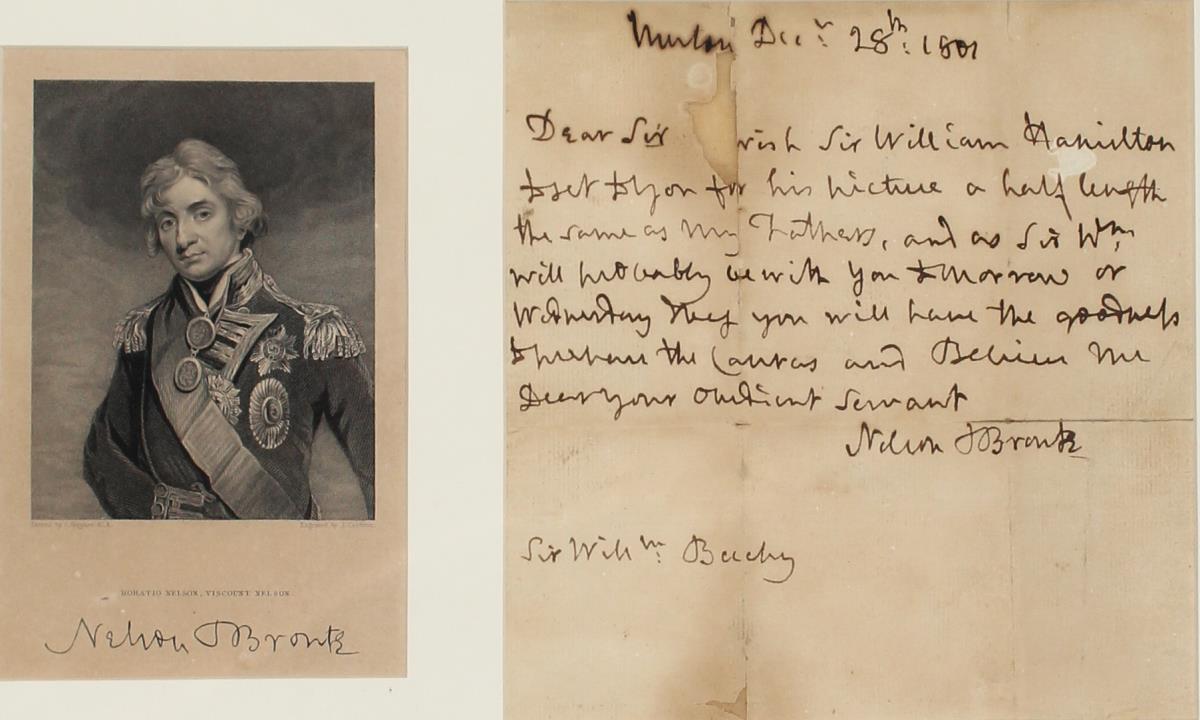 Painted by J. Hoppner R.A.
HORATIO NELSON, VISCOUNT NELSON.
Nelson & Bronte
Merton Decr: 28th: 1801
Dear Sir wish Sir William Hamilton
to set to you for his picture a half length
the same as my Fathers, and as Sir Wm:
will probably be with you tomorrow or
Wednesday you will have the goodness
to prepare the Canvas and Believe Me
Dear your obedient servant
Nelson & Bronte
Sir Willm: Beechy